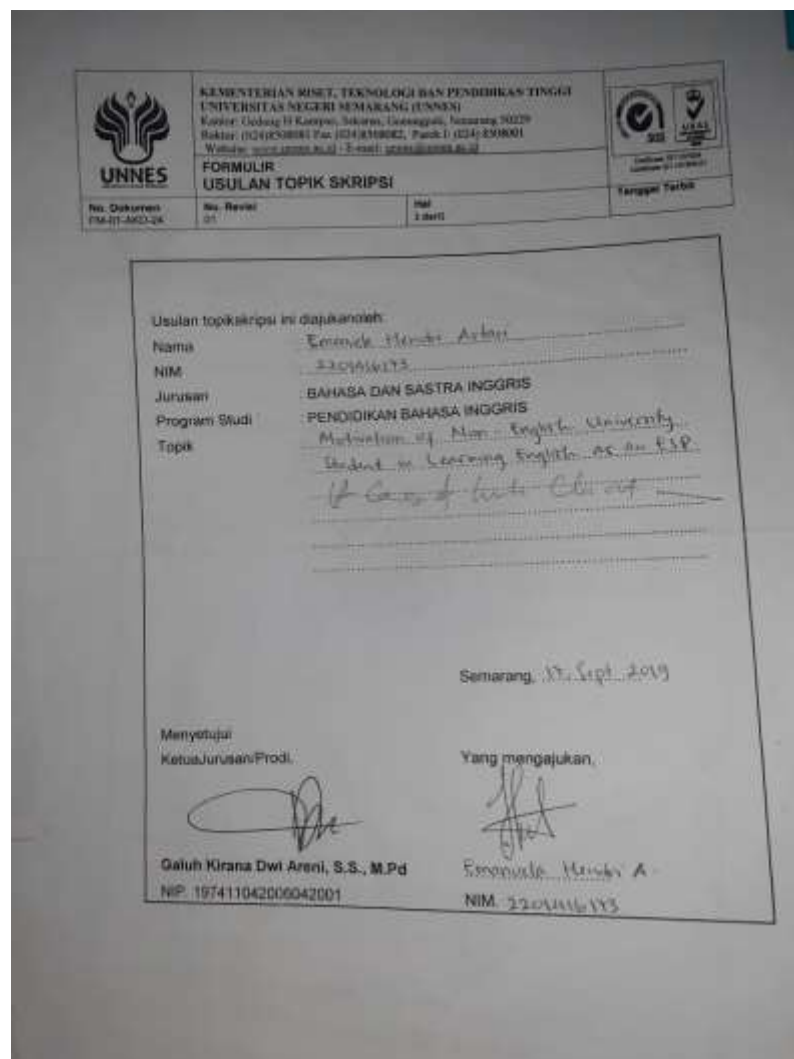 UNNES
KEMENTERIAN RISET, TEKNOLOGI DAN PENDIDIKAN TINGGI
UNIVERSITAS NEGERI SEMARANG (UNNES)
Kantor: Gedung H Kampus, Sekaran, Gunungpati, Semarang 50229
Rektor: (024)8508081 Fax (024)8508082, Purek I: (024) 8508001
Website: www.unnes.ac.id - E-mail:
FORMULIR
USULAN TOPIK SKRIPSI
No. Dokumen
FM-01-AKD-24
No. Revisi
01
Hal
Tanggal Terbit
Usulan topikskripsi ini diajukanoleh:
Nama : Emanuela Hendri
NIM :
Jurusan : BAHASA DAN SASTRA INGGRIS
Program Studi : PENDIDIKAN BAHASA INGGRIS
Topik : Motivation of Non-English University
Student in Learning English as an ESP
Semarang, 17, Sept 2019
Menyetujui
KetuaJurusan/Prodi,
Yang mengajukan,
Galuh Kirana Dwi Areni, S.S., M.Pd
Emanuela Hendri A.
NIP. 197411042006042001
NIM.